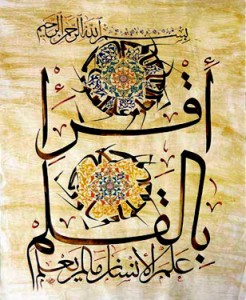 بسم الله الرحمن الرحيم
أقرأ
بالقلم
علم الانسان مالم يعلم